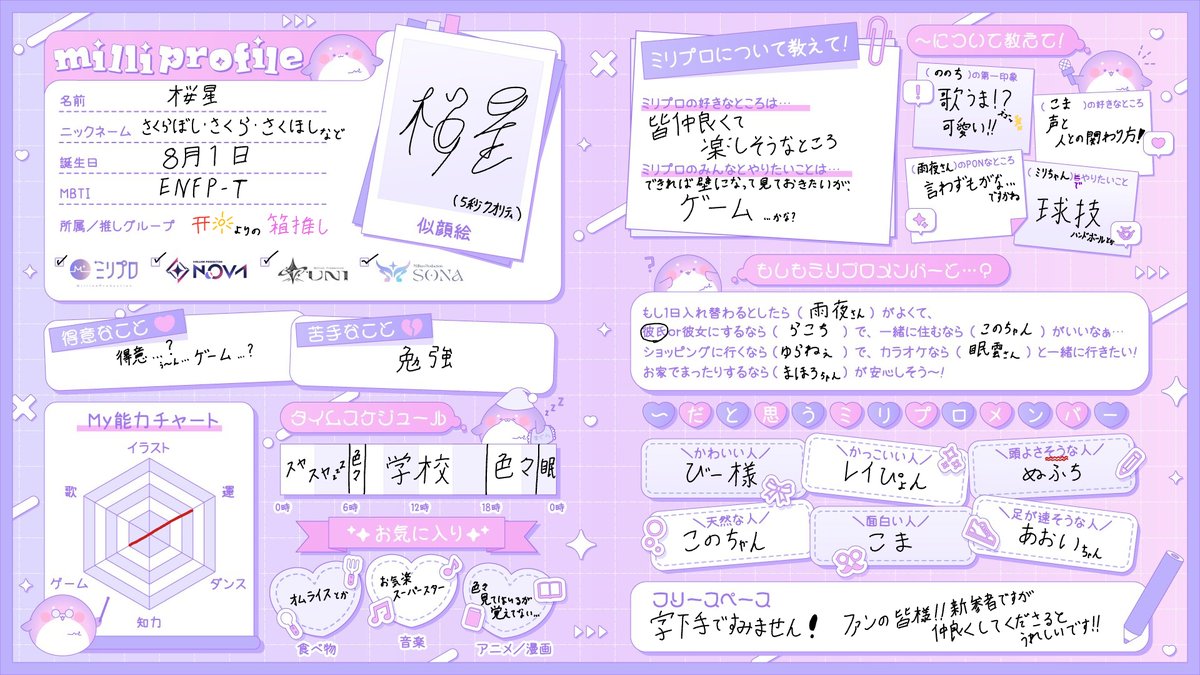 milli profile
名前 桜星
ニックネーム さくらぼし・さくら・さくほしなど
誕生日 8月1日
MBTI ENFP-T
所属/推しグループ よりの 箱推し
ミリプロ
NOVA
UNI
SONA
桜星
(5秒クオリティ)
似顔絵
得意なこと
得意…? うーん…ゲーム…?
苦手なこと
勉強
My能力チャート
イラスト
歌
運
ゲーム
ダンス
知力
タイムスケジュール
スヤスヤzzZ
色々
学校
色々
眠
0時 6時 12時 18時 0時
zZZ
お気に入り
オムライスとか
お気楽スーパースター
色々見てはいるが覚えてない…
食べ物
音楽
アニメ/漫画
ミリプロについて教えて!
ミリプロの好きなところは…
皆仲良くて
楽しそうなところ
ミリプロのみんなとやりたいことは…
できれば壁になって見ておきたいが、
ゲーム …かな?
〜について教えて!
(ののち)の第一印象
歌うま!?
可愛い!!
(こま)の好きなところ
声と
人との関わり方!
(雨夜さん)のPONなところ
言わずもがな…
ですかね
(ミリちゃん)とやりたいこと
球技
ハンドボールとか
もしもミリプロメンバーと…?
もし1日入れ替わるとしたら(雨夜さん)がよくて、
彼氏or彼女にするなら(らこち)で、一緒に住むなら(このちゃん)がいいなぁ…
ショッピングに行くなら(ゆらねぇ)で、カラオケなら(眠雲さん)と一緒に行きたい!
お家でまったりするなら(まほろちゃん)が安心しそう〜!
〜だと思うミリプロメンバー
\かわいい人/
びー様
\かっこいい人/
レイぴょん
\頭よさそうな人/
ぬふち
\天然な人/
このちゃん
\面白い人/
こま
\足が速そうな人/
あおいちゃん
フリースペース
字下手ですみません!
ファンの皆様!!新参者ですが
仲良くしてくださると
うれしいです!!